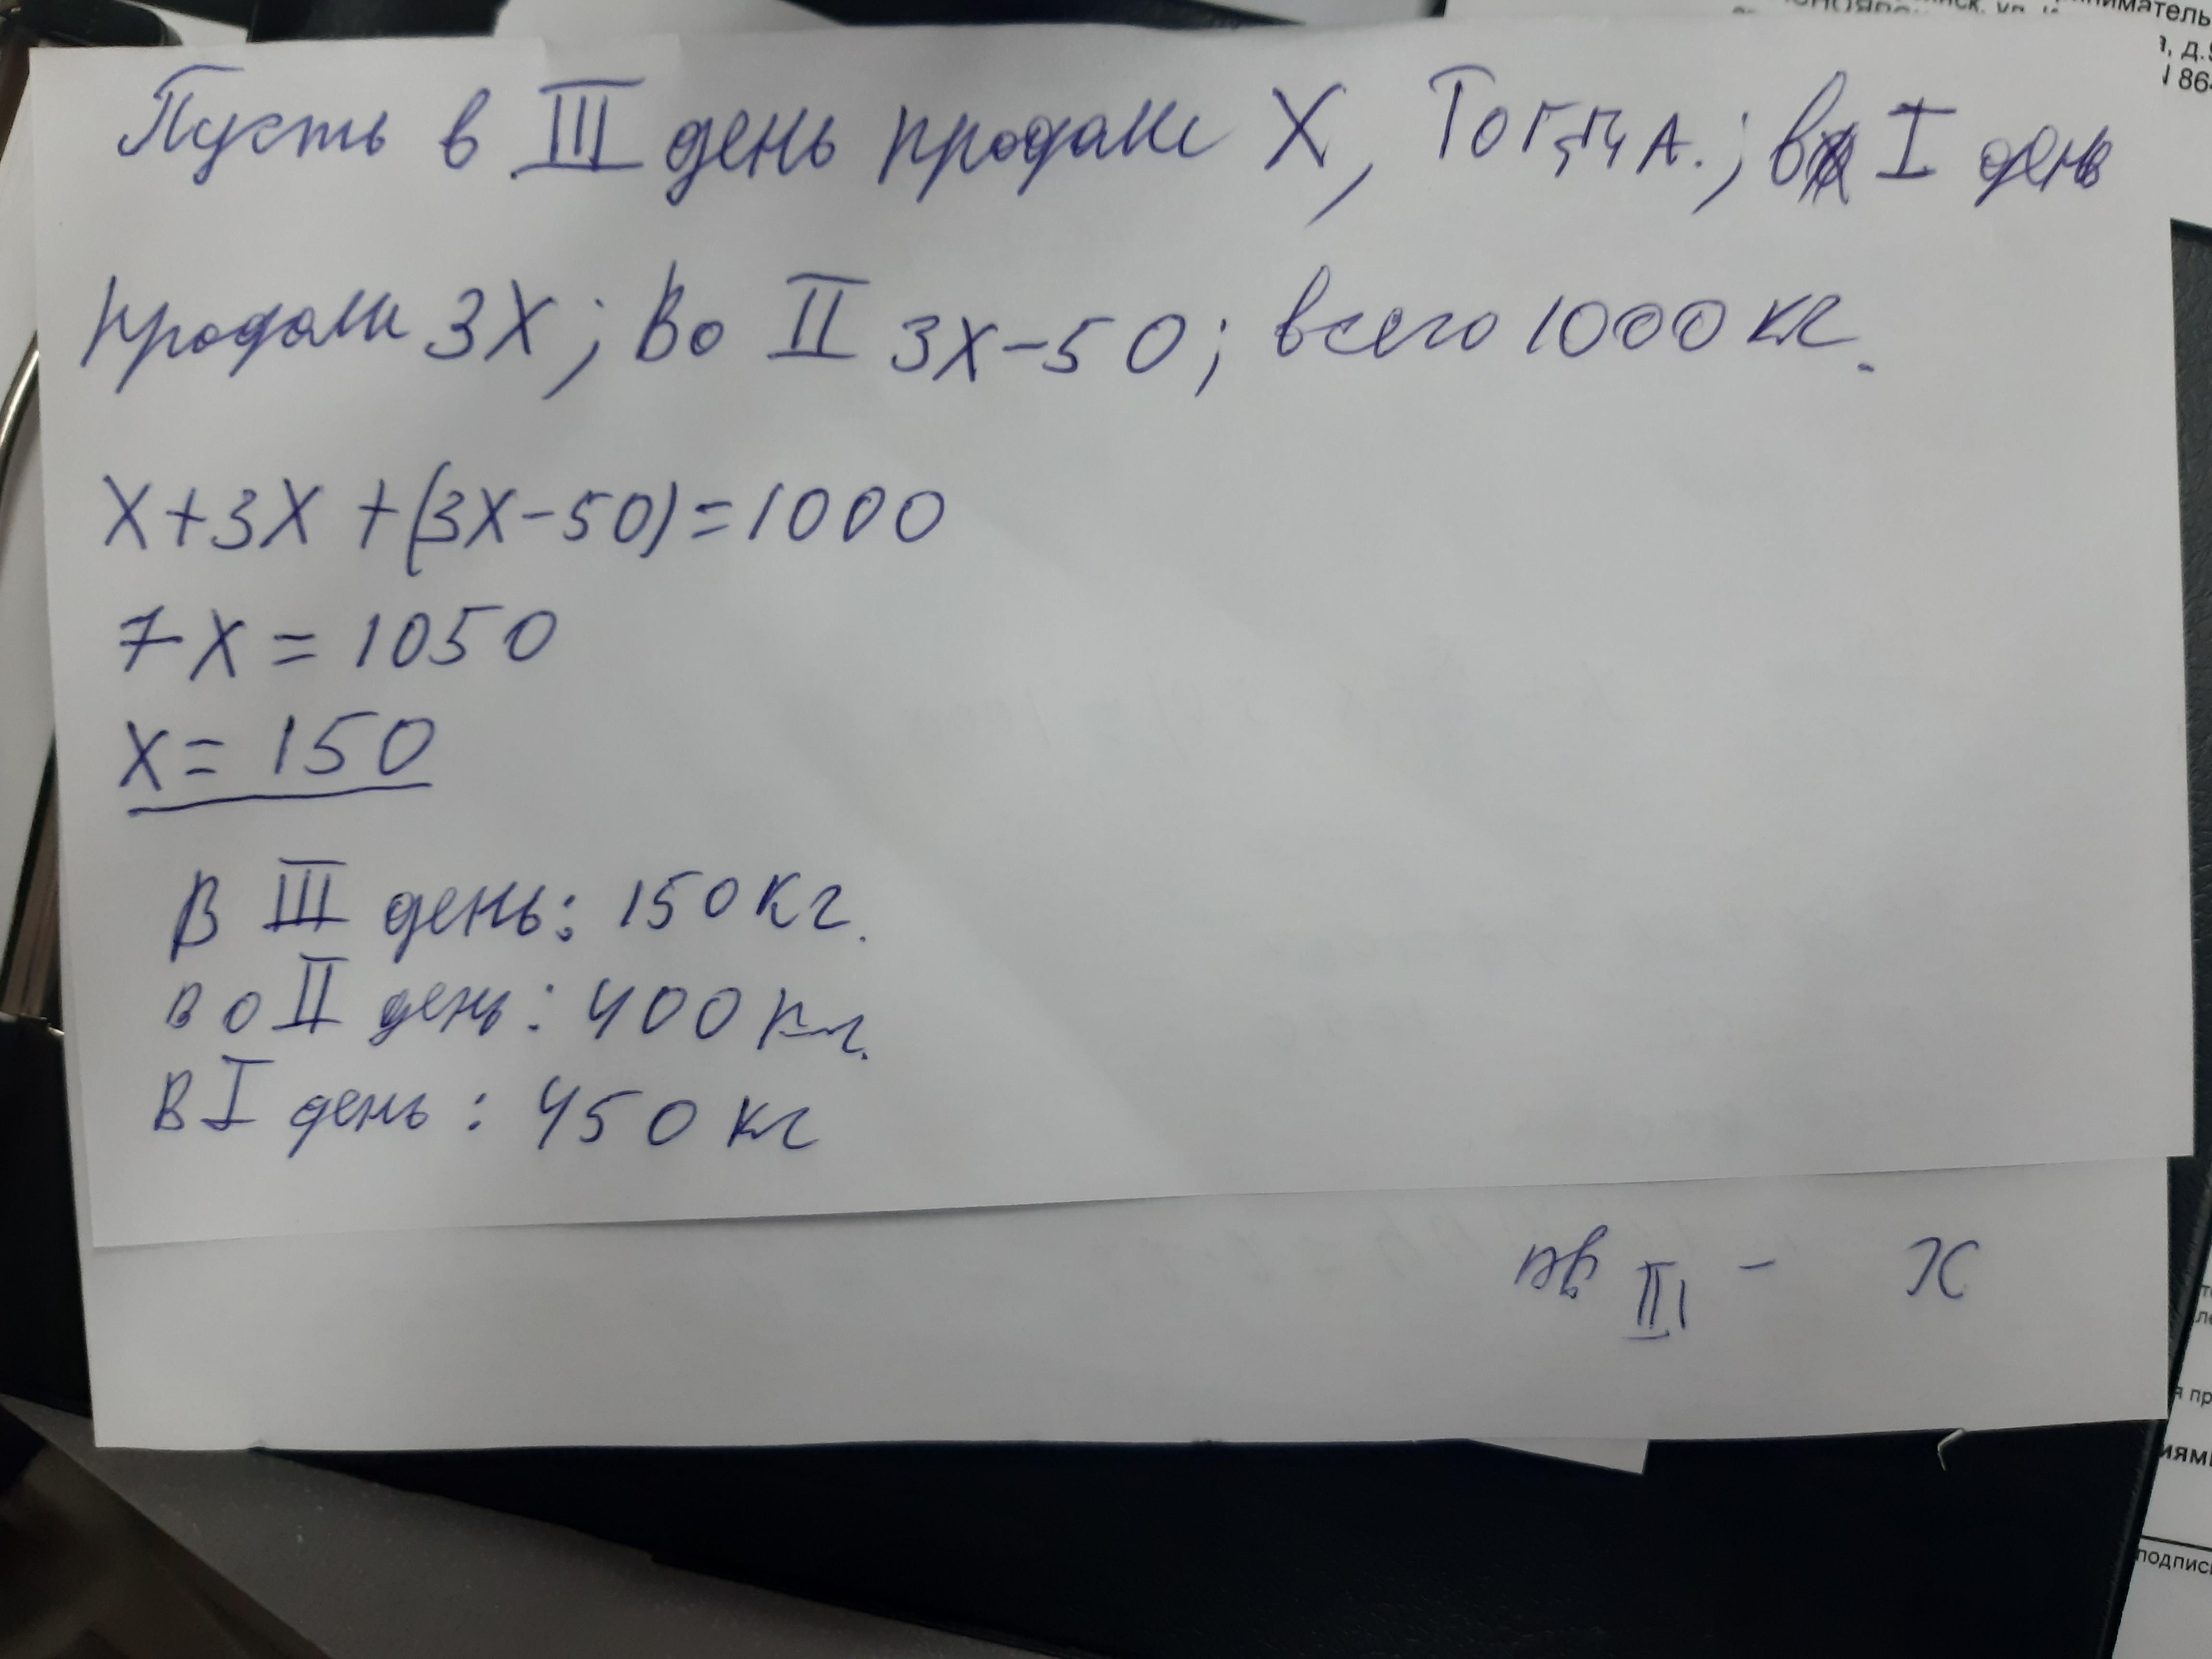 Пусть в III день продали X, Тогда.; в I день
продали 3X; Во II 3X-50; всего 1000 кг.
X+3X+(3X-50)=1000
7X=1050
X=150
В III день: 150 кг.
во II день: 400 кг.
В I день: 450 кг
X - III дн
подпис